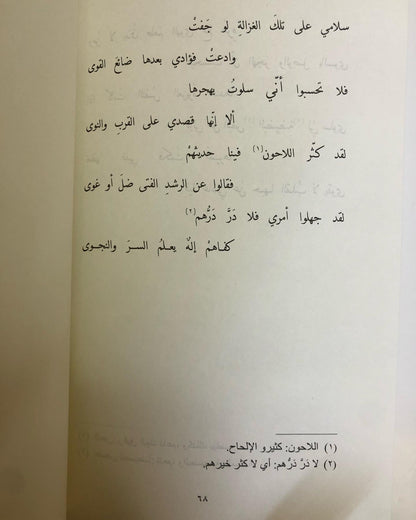 سلامي على تلكَ الغزالةِ لو جَفتْ
وادعتْ فؤادي بعدها ضائعَ القوى
فلا تحسبوا أنّي سلوتُ بهجرها
ألا إنّها قصدي على القربِ والنوى
لقد كثّر اللاحون(١) فينا حديثهُمْ
فقالوا عن الرشدِ الفتى ضلَ أو غوى
لقد جهلوا أمري فلا دَرَّ دَرُّهم(٢)
كفاهمْ إلهٌ يعلمُ السرَ والنجوى
(١) اللاحون: كثيرو الإلحاح.
(٢) لا دَرَّ دَرُّهم: أي لا كثر خيرهم.
٦٨